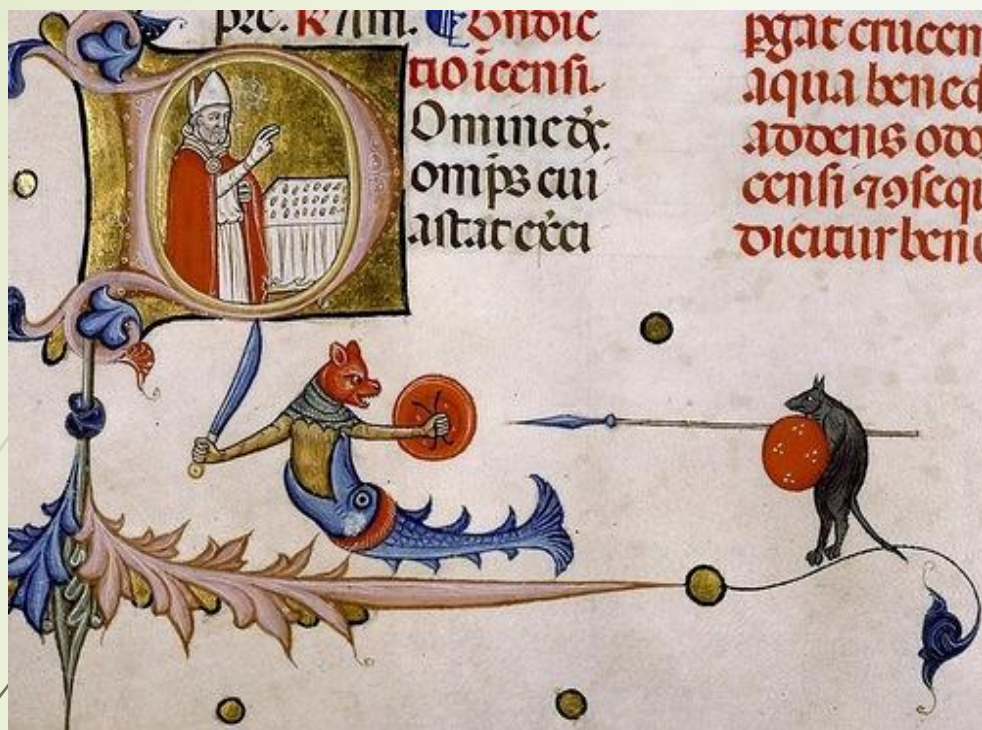 Am. Bndic
tio icensi.
DOmine ds.
omps cui
astat exci
pgat crucem
aqua bened
addens odo
censi ⁊ ꝯsequ
dicitur bene